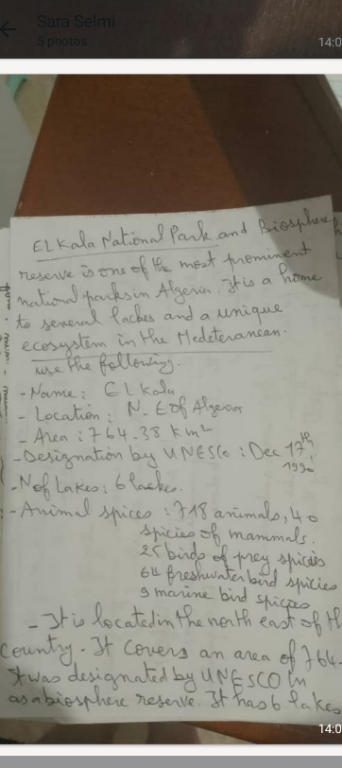 Sara Selmi
5 photos
14:0
EL Kala National Park and Biosphere
reserve is one of the most prominent
national parks in Algeria. It is a home
to several lackes and a unique
ecosystem in the Medeteranean.
use the following.
- Name: EL Kala
- Location: N. E of Algeria
- Area: 764.38 Km²
- Designation by UNESCO: Dec 17th
1990
- N of Lakes: 6 lackes.
- Animal spices: 718 animals, 40
spicies of mammals.
25 birds of prey spicies
64 freshwater bird spicies
9 marine bird spicies
- It is located in the north east of th
country. It covers an area of 764.
It was designated by UNESCO in
as a biosphere reserve. It has 6 lakes
14:0